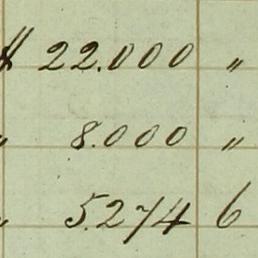 22.000 "
" 8.000 "
" 5.274 6